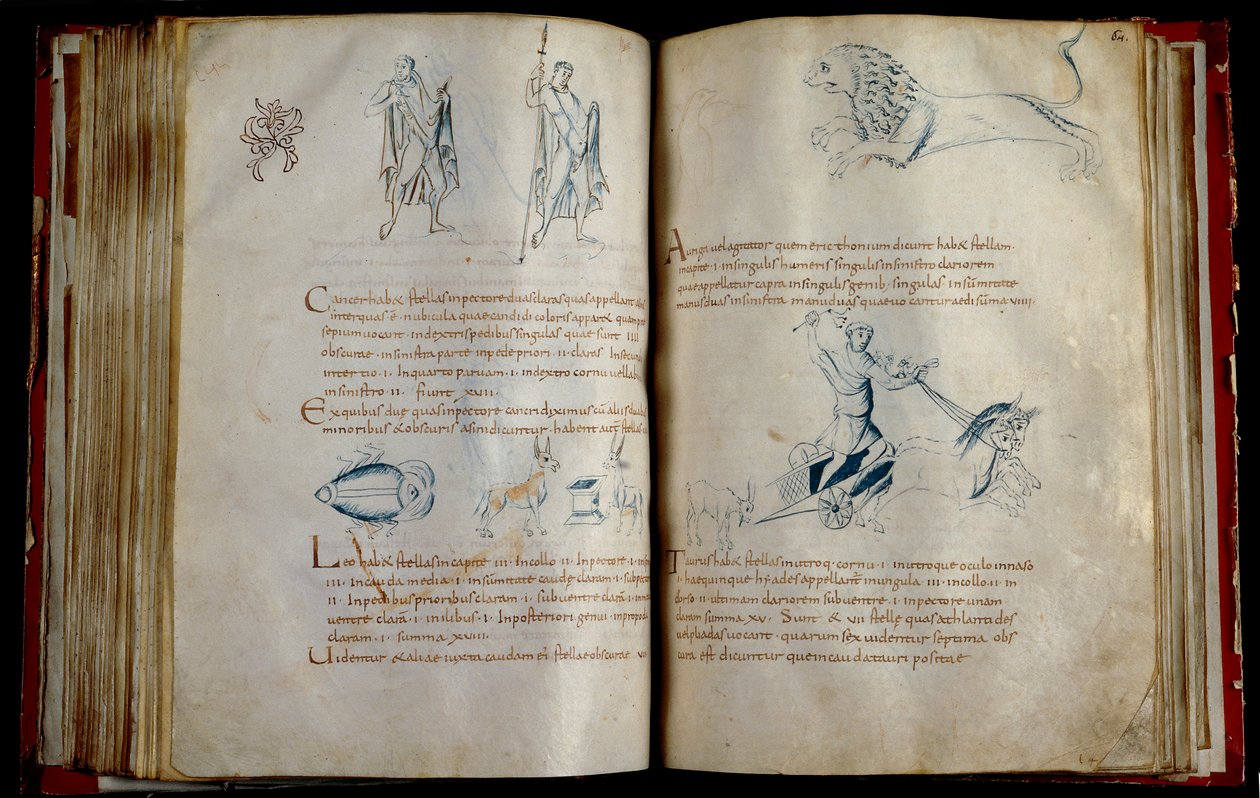 Cancer hab& stellas in pectore duas claras quas appellant
inter quas ē· nubicula quae candidi coloris appar& quam
sepium uocant· in dextris pedibus singulas quae sunt IIII
obscurae· in sinistra parte in pede priori· II· claras In secun
in tertio· I· In quarto paruam· I· in dextro cornu uel lab
in sinistro· II· fiunt XVII·
Ex quibus duę quas in pectore cancri diximus cū aliis duab
minoribus & obscuris asini dicuntur· habent aut̄ stellas
Leo hab& stellas in capite III· In collo II· In pectore· I·
III· In cauda media· I· in summitate caudę claram· I· sub pect
II· In pedibus prioribus claram· I· sub uentre clarā· I·
uentre clarā· I· in ilibus· I· In posteriori genu· in
claram· I· summa XVIII·
Uidentur & aliae iuxta caudam ei' stellae obscurae VII
64·
Auriga uel agitator quem ericthonium dicunt hab& stellam·
in capite· I· in singulis humeris singulis in sinistro clariorem
quae appellatur capra in singulis genib; singulas in sūmitate
manus duas in sinistra manu duas quae uocantur aedi sūma VIIII·
Taurus hab& stellas in utroq; cornu· I· in utroque oculo in naso
I· hae quinque hyades appellant̄ in ungula III· in collo· II· in
dorso· II· ultimam clariorem sub uentre· I· in pectore unam
claram summa XV· Sunt & VII stellę quas athlantides
uel pliadas uocant· quarum sex uidentur septima obs
cura est dicuntur que in cauda tauri positae